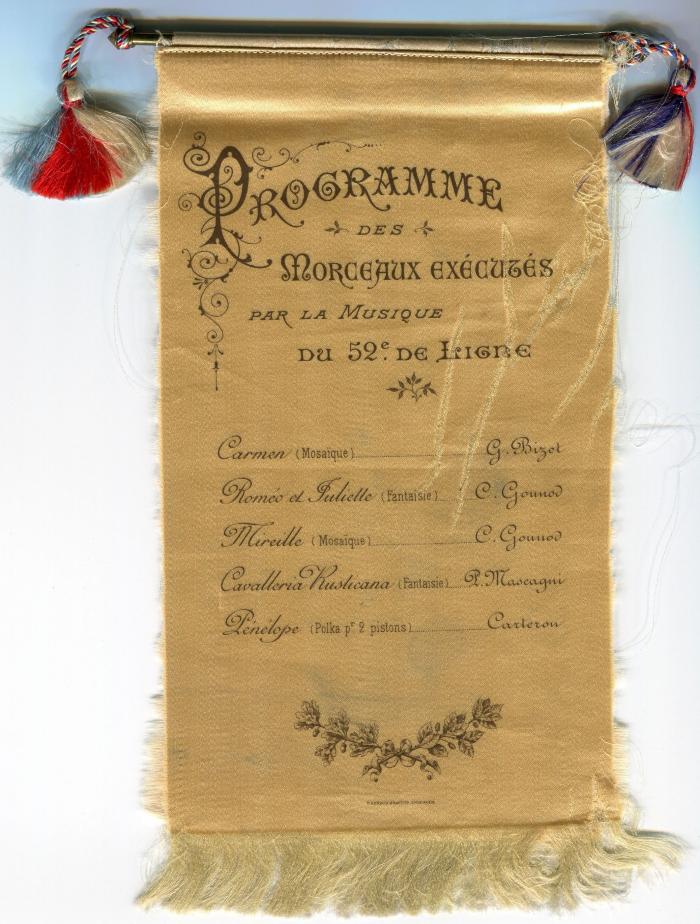 PROGRAMME
DES
MORCEAUX EXÉCUTÉS
PAR LA MUSIQUE
DU 52e. DE LIGNE
Carmen (Mosaïque) G. Bizet
Roméo et Juliette (Fantaisie) C. Gounod
Mireille (Mosaïque) C. Gounod
Cavalleria Rusticana (Fantaisie) P. Mascagni
Pénélope (Polka pr 2 pistons) Carteron